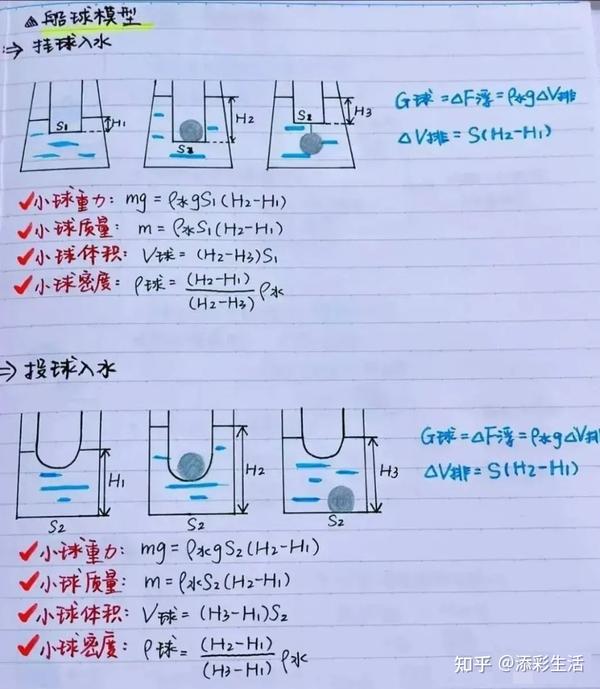 船球模型
⇒ 挂球入水
S₁ H₁
S₂ H₂
S₂ H₃
G球=ΔF浮=ρ水gΔV排
ΔV排=S(H₂-H₁)
✓小球重力: mg=ρ水gS₁(H₂-H₁)
✓小球质量: m=ρ水S₁(H₂-H₁)
✓小球体积: V球=(H₂-H₃)S₁
✓小球密度: ρ球=(H₂-H₁)/(H₂-H₃) ρ水
⇒ 投球入水
H₁ H₂ H₃
G球=ΔF浮=ρ水gΔV排
ΔV排=S(H₂-H₁)
S₂ S₂
✓小球重力: mg=ρ水gS₂(H₂-H₁)
✓小球质量: m=ρ水S₂(H₂-H₁)
✓小球体积: V球=(H₃-H₁)S₂
✓小球密度: ρ球=(H₂-H₁)/(H₃-H₁) ρ水
知乎 @添彩生活